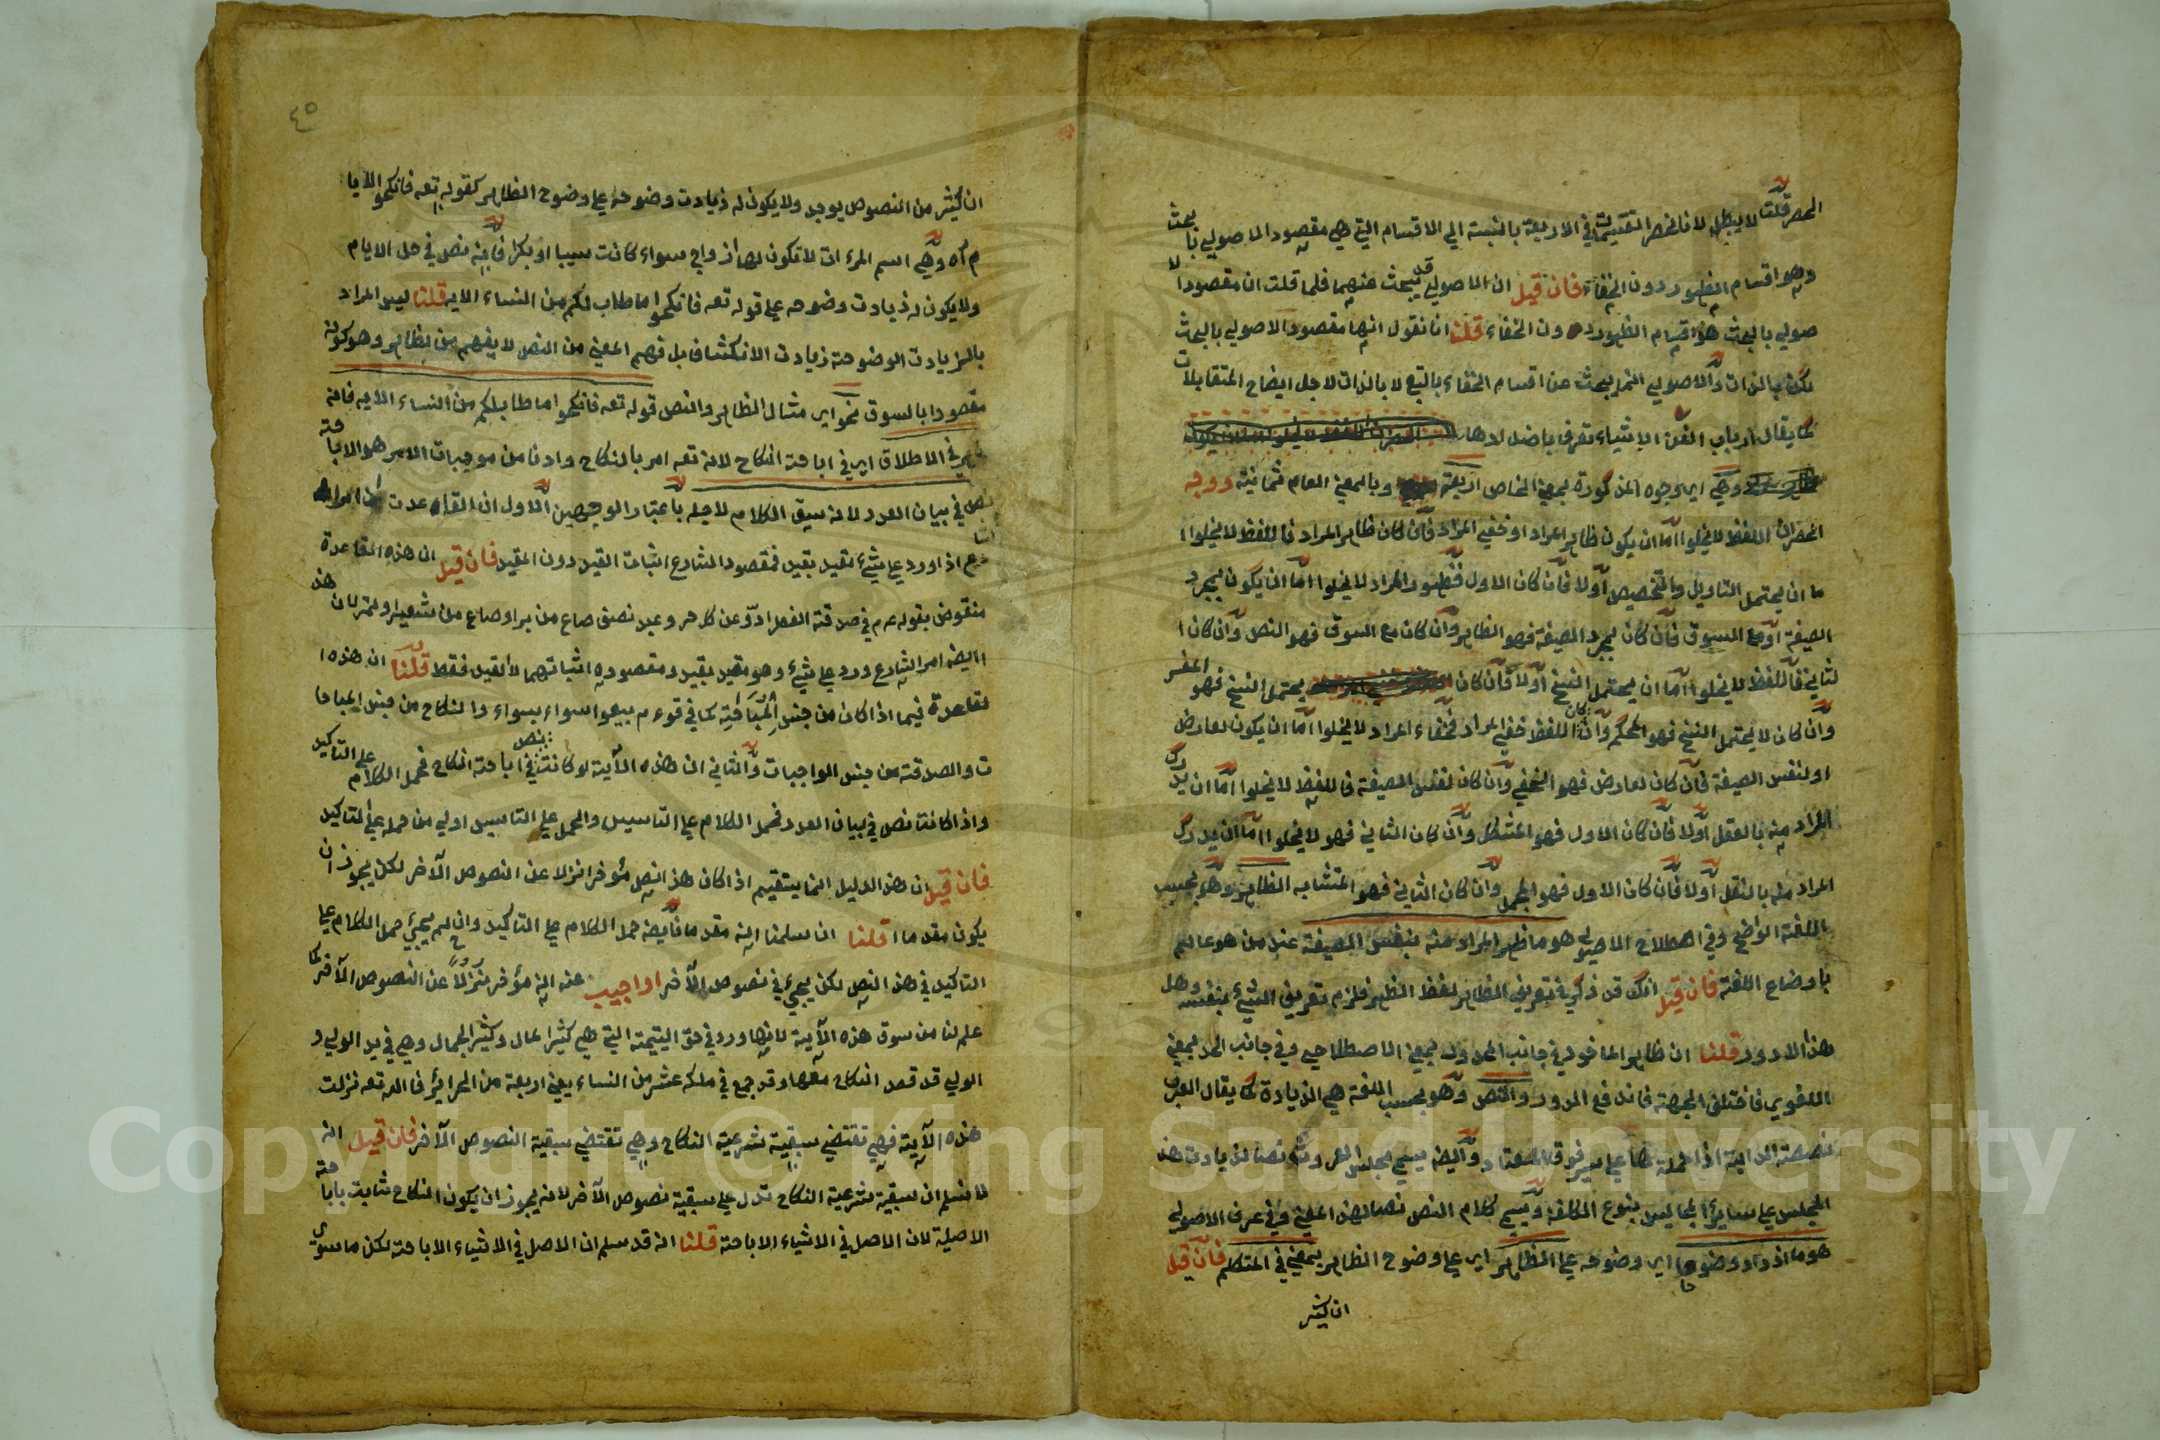 الحصر قلنا لا يبطل لانا نحصر التقسيمات في الاربعة بالنسبة الي الاقسام التي هي مقصود الاصولي بالبحث
وهو اقسام الظهور دون الخفاء فان قيل ان الاصولي قد يبحث عنهما فلما قلت ان مقصود الا
صولي بالبحث هو اقسام الظهور دون الخفاء قلنا انا نقول انها مقصود الاصولي بالبحث
لكن بالذات والاصولي انما يبحث عن اقسام الخفاء بالتبع لا بالذات لاجل ايضاح المتقابلات
كما يقال ارباب الفن الاشياء تعرف باضدادها
وهي اي وجوه المذكورة بمعني الخاص اربعة وبالمعني العام ثمانية ووجه
الحصر ان اللفظ لا يخلوا اما ان يكون ظاهر المراد او خفي المراد فان كان ظاهر المراد فاللفظ لا يخلوا ا
ما ان يحتمل التاويل والتخصيص اولا فان كان الاول فظهور المراد لا يخلوا اما ان يكون بمجرد
الصيغة او مع السوق فان كان بمجرد الصيغة فهو الظاهر وان كان مع السوق فهو النص وان كان ا
لثاني فاللفظ لا يخلوا اما ان يحتمل النسخ اولا فان كان يحتمل النسخ فهو المفسر
وان كان لا يحتمل النسخ فهو المحكم وان كان اللفظ خفي المراد فخفاء المراد لا يخلوا اما ان يكون لعارض
او لنفس الصيغة فان كان لعارض فهو الخفي وان كان لنفس الصيغة فاللفظ لا يخلوا اما ان يدرك
المراد منه بالعقل اولا فان كان الاول فهو المشكل وان كان الثاني فهو لا يخلوا اما ان يدرك
المراد منه بالنقل اولا فان كان الاول فهو المجمل وان كان الثاني فهو المتشابه الظاهر وهو بحسب
اللغة الواضح وفي اصطلاح الاصولي هو ما ظهر المراد منه بنفس الصيغة عند من هو عالم
باوضاع اللغة فان قيل انك قد ذكر في تعريف الظاهر لفظ الظهر فلزم تعريف الشيء بنفسه وهل
هذا الا دور قلنا ان ظاهر الماخوذ في جانب المحدود بمعني الاصطلاحي وفي جانب الحد بمعني
اللغوي فاختلف الجهة فاندفع الدور والنص وهو بحسب اللغة هي الزيادة كما يقال العرب
نصصت الدابة اذا حملتها علي سير فوق المعتاد وايضا يسمي مجلس العروس نصا لزيادت هذ
المجلس علي سائر المجاليس بنوع التكلف ويسمي كلام النص نصا لهذا المعني وفي عرف الاصولي
هو ما ازداد وضوحا اي وضوحه علي الظاهر اي علي وضوح الظاهر بمعني في المتكلم فان قيل
ان كثير
٤٥
ان كثير من النصوص يوجد ولا يكون له زيادت وضوحه علي وضوح الظاهر كقوله تعه فانكحوا الايا
م آه وهي اسم المرءات لا تكون لها ازواج سواء كانت سيبا او بكرا فانه نص في حل الايام
ولا يكون له زيادت وضوحه علي قوله تعه فانكحوا ما طاب لكم من النساء الايه قلنا ليس المراد
بالزيادت الوضوحة زيادت الانكشاف بل فهم المعني من النص لا يفهم من الظاهر وهو كونه
مقصودا بالسوق نحو اي مثال الظاهر والنص قوله تعه فانكحوا ما طاب لكم من النساء الايه فانه
ظاهر في الاطلاق اي في اباحة النكاح لانه تعه امر بالنكاح وادنا من موجبات الامر هو الاباحة
نص في بيان العدد لانه سيق الكلام لاجله باعتبار الوجهين الاول ان القاعدت ان امر الشا
رع اذا ورد علي شيء مقيد بقيد فمقصود الشارع اثبات القيد دون المقيد فان قيل ان هذه القاعدة
منقوض بقوله عم في صدقة الفطر ادوا عن كل حر وعبد نصف صاع من بر او صاع من شعير او تمر لان هذ
ا ايضا امر الشارع ورد علي شيء وهو مقيد بقيد ومقصوده اثباتهما لا القيد فقط قلنا ان هذه ا
لقاعدة فيما اذا كان من جنس المباحة كما في قوءم بيعوا سواء بسواء والنكاح من جنس المباحا
ت والصدقة من جنس الواجبات والثاني ان هذه الآية لو كانت نص في اباحة النكاح فحمل الكلام علي التاكيد
واذا كانت نص في بيان العدد فحمل الكلام علي التاسيس والحمل علي التاسيس اولي من حمله علي التاكيد
فان قيل ان هذ الدليل انما يستقيم اذا كان هذا النص مؤخر انزلا عن النصوص الآخر لكن يجوز ان
يكون مقدما قلنا ان سلمنا انه مقدما فايضا حمل الكلام علي التاكيد وان لم يجيء حمل الكلام علي
التاكيد في هذ النص لكن يجيء في نصوص الآخر او اجيب عنه انه مؤخر منزلاً عن النصوص الآخر كما
علم لنا من سوق هذه الآية لانها ورد في حق اليتيمة التي هي كثير المال وكثير الجمال وهي في يد الولي و
الولي قد قصد النكاح معها وقد جمع في ملكه عشر من النساء يعني اربعة من الحراير فالله تعه نزلت
هذه الآية فهي تقتضي سبقية شرعية النكاح وهي تقتضي سبقية النصوص الآخر فان قيل انه
لا نسلم ان سبقية شرعية النكاح تدل علي سبقية نصوص الآخر لانه يجوز ان يكون النكاح ثابت باباحة
الاصلية لان الاصل في الاشياء الاباحة قلنا انه قد سلم ان الاصل في الاشياء الاباحة لكن ما سوي
Copyright © King Saud University